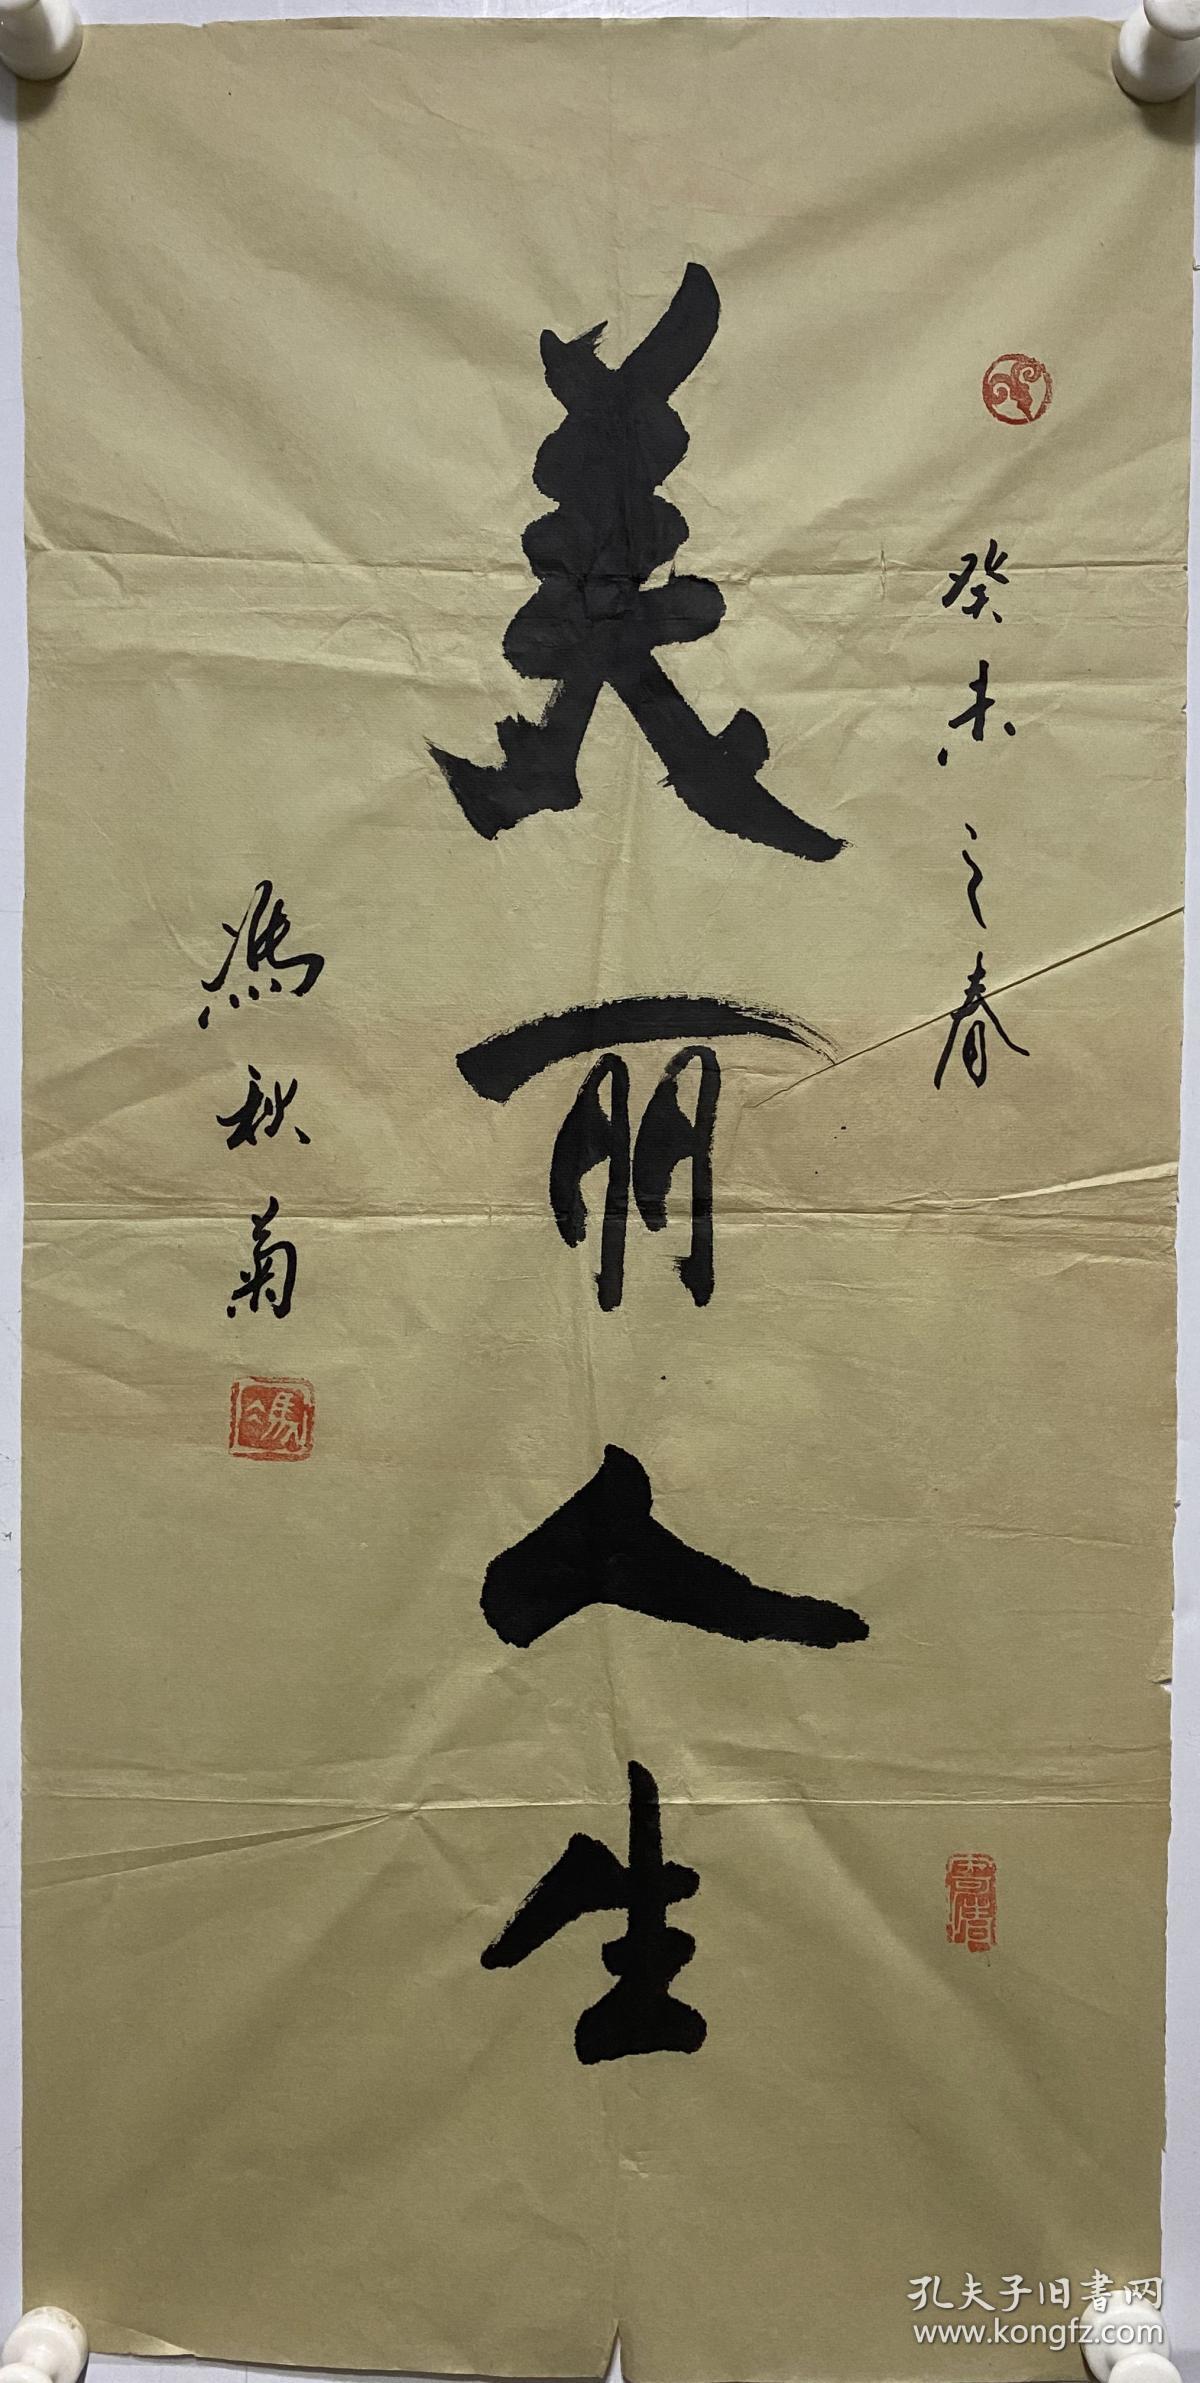 癸未之春
美丽人生
馮秋菊
馮
孔夫子旧書网
www.kongfz.com